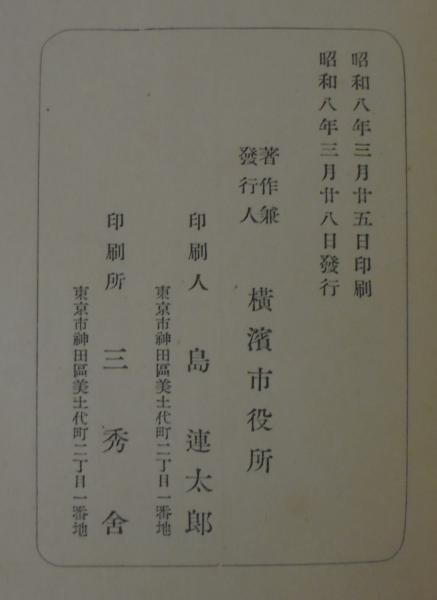 昭和八年三月廿五日印刷
昭和八年三月廿八日發行
著作兼
發行人
橫濱市役所
印刷人 島連太郎
東京市神田區美土代町二丁目一番地
印刷所 三秀舍
東京市神田區美土代町二丁目一番地